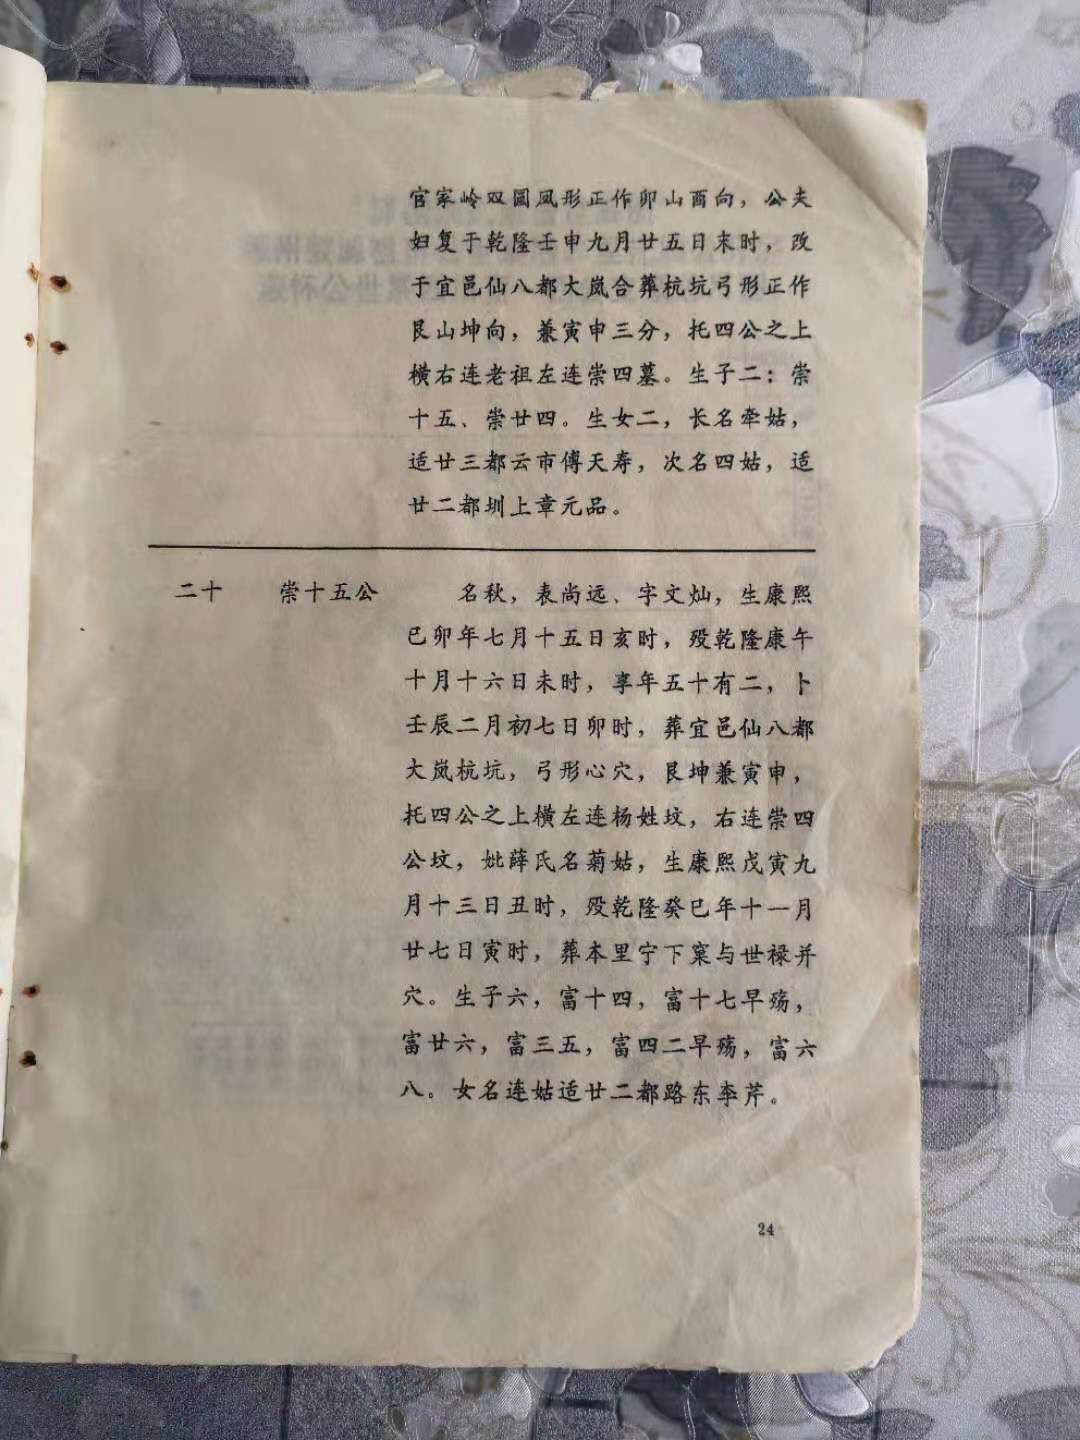 官家岭双圆凤形正作卯山酉向，公夫
妇复于乾隆壬申九月廿五日未时，改
于宜邑仙八都大岚合葬杭坑弓形正作
艮山坤向，兼寅申三分，托四公之上
横右连老祖左连崇四墓。生子二：崇
十五、崇廿四。生女二，长名牵姑，
适廿三都云市傅天寿，次名四姑，适
廿二都圳上章元品。
二十　崇十五公　名秋，表尚远、字文灿，生康熙
已卯年七月十五日亥时，殁乾隆康午
十月十六日未时，享年五十有二，卜
壬辰二月初七日卯时，葬宜邑仙八都
大岚杭坑，弓形心穴，艮坤兼寅申，
托四公之上横左连杨姓坟，右连崇四
公坟，妣薛氏名菊姑，生康熙戊寅九
月十三日丑时，殁乾隆癸巳年十一月
廿七日寅时，葬本里宁下窠与世禄并
穴。生子六，富十四，富十七早殇，
富廿六，富三五，富四二早殇，富六
八。女名连姑适廿二都路东李芹。
24